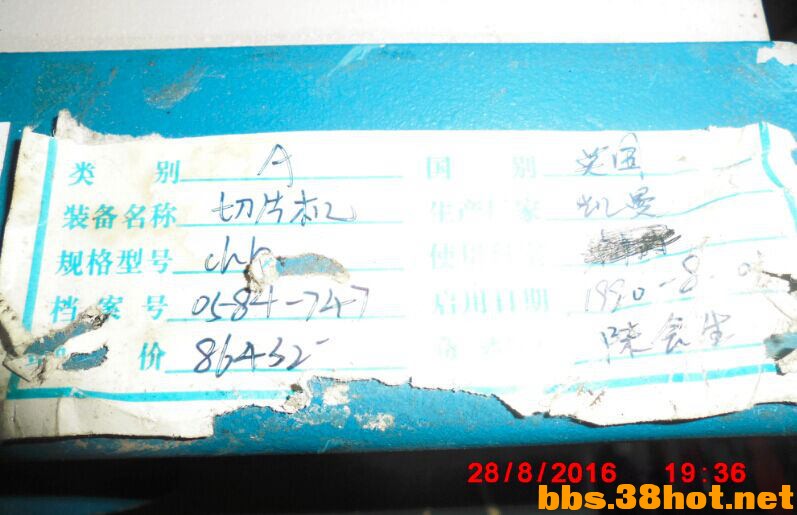 类 别 A 国 别 英国
装备名称 切片机 生产厂家 凯曼
规格型号
档案号 0584-747 启用日期 1990-8
价 86432
28/8/2016 19:36
bbs.38hot.net